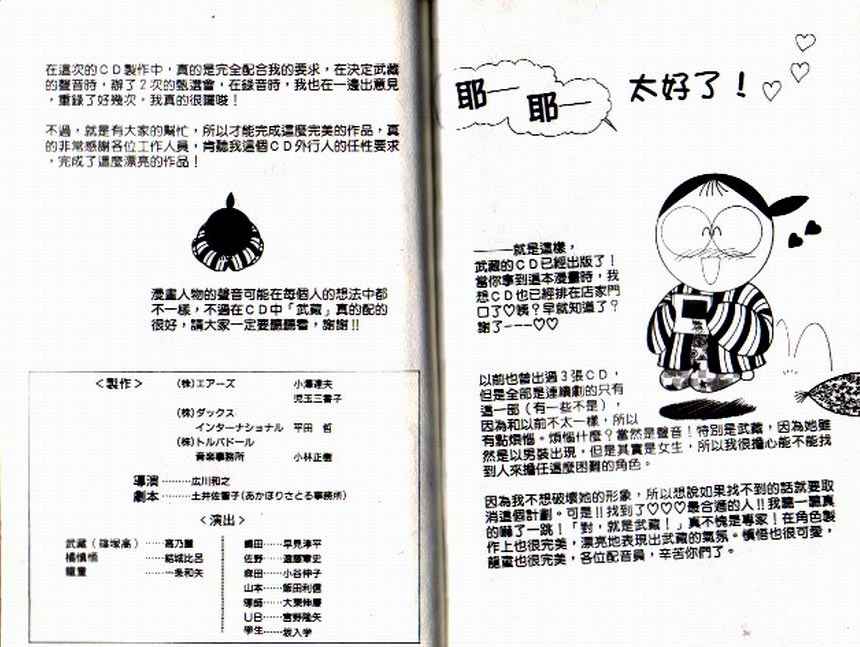 耶一
耶一
太好了！
———就是這樣，
武藏的ＣＤ已經出版了！
當你拿到這本漫畫時，我
想ＣＤ也已經排在店家門
口了♡咦？早就知道了？
謝了---♡♡
以前也曾出過３張ＣＤ，
但是全部是連續劇的只有
這一部（有一些不是），
因為和以前不太一樣，所以
有點煩惱。煩惱什麼？當然是聲音！特別是武藏，因為她雖
然是以男裝出現，但是其實是女生，所以我很擔心能不能找
到人來擔任這麼困難的角色。
因為我不想破壞她的形象，所以想說如果找不到的話就要取
消這個計劃。可是!!找到了♡♡♡最合適的人!!我聽一聽真
的嚇了一跳！「對，就是武藏！」真不愧是專家！在角色製
作上也很完美，漂亮地表現出武藏的氣氛。慎悟也很可愛，
龍童也很完美，各位配音員，辛苦你們了。
在這次的ＣＤ製作中，真的是完全配合我的要求，在決定武藏
的聲音時，辦了２次的甄選會，在錄音時，我也在一邊出意見
，重錄了好幾次，我真的很囉唆！
不過，就是有大家的幫忙，所以才能完成這麼完美的作品，真
的非常感謝各位工作人員，肯聽我這個ＣＤ外行人的任性要求
，完成了這麼漂亮的作品！
漫畫人物的聲音可能在每個人的想法中都
不一樣，不過在ＣＤ中「武藏」真的配的
很好，請大家一定要聽聽看，謝謝!!
＜製作＞ （株）エアーズ 小澤達夫
児玉三書子
（株）ダックス
インターナショナル 平田 哲
（株）トルバドール
音楽事務所 小林正樹
導演………広川和之
劇本………土井佐智子（あかほりさとる事務所）
＜演出＞
武藏（篠塚高）……高乃麗
橘慎悟……結城比呂
龍童……一条和矢
嶋田……早見淳平
佐野……遠藤章史
森田……小谷伸子
山本……飯田利信
導師……大東伸慶
ＵＢ……宮野隆矢
學生……坂入学